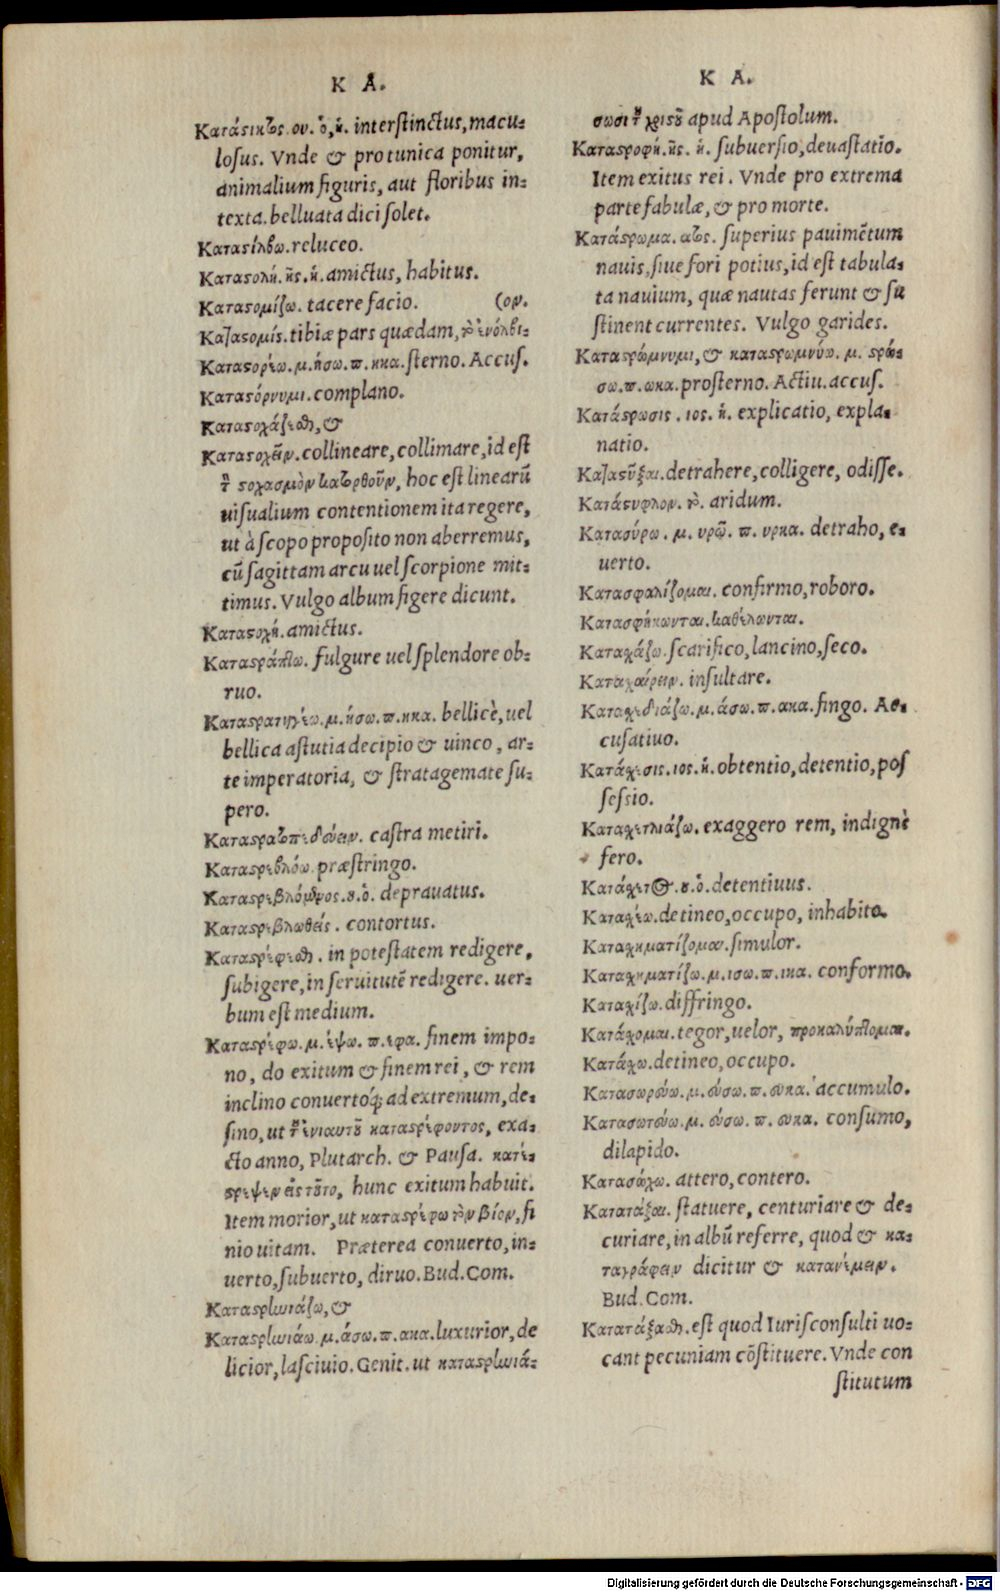 K A.
Κατάστικτος. ου. ὁ, ἡ. interſtinctus, macu-
loſus. Vnde & pro tunica ponitur,
animalium figuris, aut floribus in-
texta. belluata dici ſolet.
Καταστίλβω. reluceo.
Καταστολή. ῆς. ἡ. amictus, habitus.
Καταστομίζω. tacere facio. (ον.
Καταστομίς. tibiæ pars quædam, τὸ ἐνόλβι-
Καταστορέω. μ. ήσω. π. ηκα. ſterno. Accuſ.
Καταστόρνυμι. complano.
Καταστοχάζεσθαι, &
Καταστοχεῖν. collineare, collimare, id eſt
τὸν στοχασμὸν κατορθοῦν, hoc eſt linearũ
uiſualium contentionem ita regere,
ut à ſcopo propoſito non aberremus,
cũ ſagittam arcu uel ſcorpione mit-
timus. Vulgo album figere dicunt.
Καταστοχή. amictus.
Καταστράπτω. fulgure uel ſplendore ob-
ruo.
Καταστρατηγέω. μ. ήσω. π. ηκα. bellicè, uel
bellica aſtutia decipio & uinco, ar-
te imperatoria, & ſtratagemate ſu-
pero.
Καταστρατοπεδεύειν. caſtra metiri.
Καταστρεβλόω. præſtringo.
Καταστρεβλόμενος. ου. ὁ. deprauatus.
Καταστρεβλωθείς. contortus.
Καταστρέφεσθαι. in poteſtatem redigere,
ſubigere, in ſeruitutẽ redigere. uer-
bum eſt medium.
Καταστρέφω. μ. έψω. π. εφα. finem impo-
no, do exitum & finem rei, & rem
inclino conuertoq́; ad extremum, de-
ſino, ut τοῦ ἐνιαυτοῦ καταστρέφοντος, exa-
cto anno, Plutarch. & Pauſa. κατέ-
στρεψεν εἰς τοῦτο, hunc exitum habuit.
Item morior, ut καταστρέφω τὸν βίον, fi
nio uitam. Præterea conuerto, in-
uerto, ſubuerto, diruo. Bud. Com.
Καταστρηνιάζω, &
Καταστρηνιάω. μ. άσω. π. ακα. luxurior, de
licior, laſciuio. Genit. ut καταστρηνιά-
K A.
σωσι τοῦ χριστοῦ apud Apoſtolum.
Καταστροφή. ῆς. ἡ. ſubuerſio, deuaſtatio.
Item exitus rei. Vnde pro extrema
parte fabulæ, & pro morte.
Κατάστρωμα. ατος. ſuperius pauimẽtum
nauis, ſiue fori potius, id eſt tabula-
ta nauium, quæ nautas ferunt & ſu
ſtinent currentes. Vulgo garides.
Καταστρώμνυμι, & καταστρωμνύω. μ. στρώ-
σω. π. ωκα. proſterno. Actiu. accuſ.
Κατάστρωσις. ιος. ἡ. explicatio, expla-
natio.
Καταστῦξαι. detrahere, colligere, odiſſe.
Κατάστυφλον. τὸ. aridum.
Κατασύρω. μ. υρῶ. π. υρκα. detraho, e-
uerto.
Κατασφαλίζομαι. confirmo, roboro.
Κατασφήκωνται. καθέλωνται.
Κατασχάζω. ſcarifico, lancino, ſeco.
Κατασχαίρειν. inſultare.
Κατασχεδιάζω. μ. άσω. π. ακα. fingo. Ac-
cuſatiuo.
Κατάσχεσις. ιος. ἡ. obtentio, detentio, poſ
ſeſsio.
Κατασχετλιάζω. exaggero rem, indignè
fero.
Κατάσχετος. ου. ὁ. detentiuus.
Κατασχέω. detineo, occupo, inhabito.
Κατασχηματίζομαι. ſimulor.
Κατασχηματίζω. μ. ισω. π. ικα. conformo.
Κατασχίζω. diffringo.
Κατάσχομαι. tegor, uelor, προκαλύπτομαι.
Κατάσχω. detineo, occupo.
Κατασωρεύω. μ. εύσω. π. ευκα. accumulo.
Κατασωτεύω. μ. εύσω. π. ευκα. conſumo,
dilapido.
Κατασώχω. attero, contero.
Κατατάξαι. ſtatuere, centuriare & de-
curiare, in albũ referre, quod & κα-
ταγράφειν dicitur & κατανέμειν.
Bud. Com.
Κατατάξασθαι. eſt quod Iuriſconſulti uo-
cant pecuniam cõſtituere. Vnde con
ſtitutum
Digitalisierung gefördert durch die Deutsche Forschungsgemeinschaft - DFG